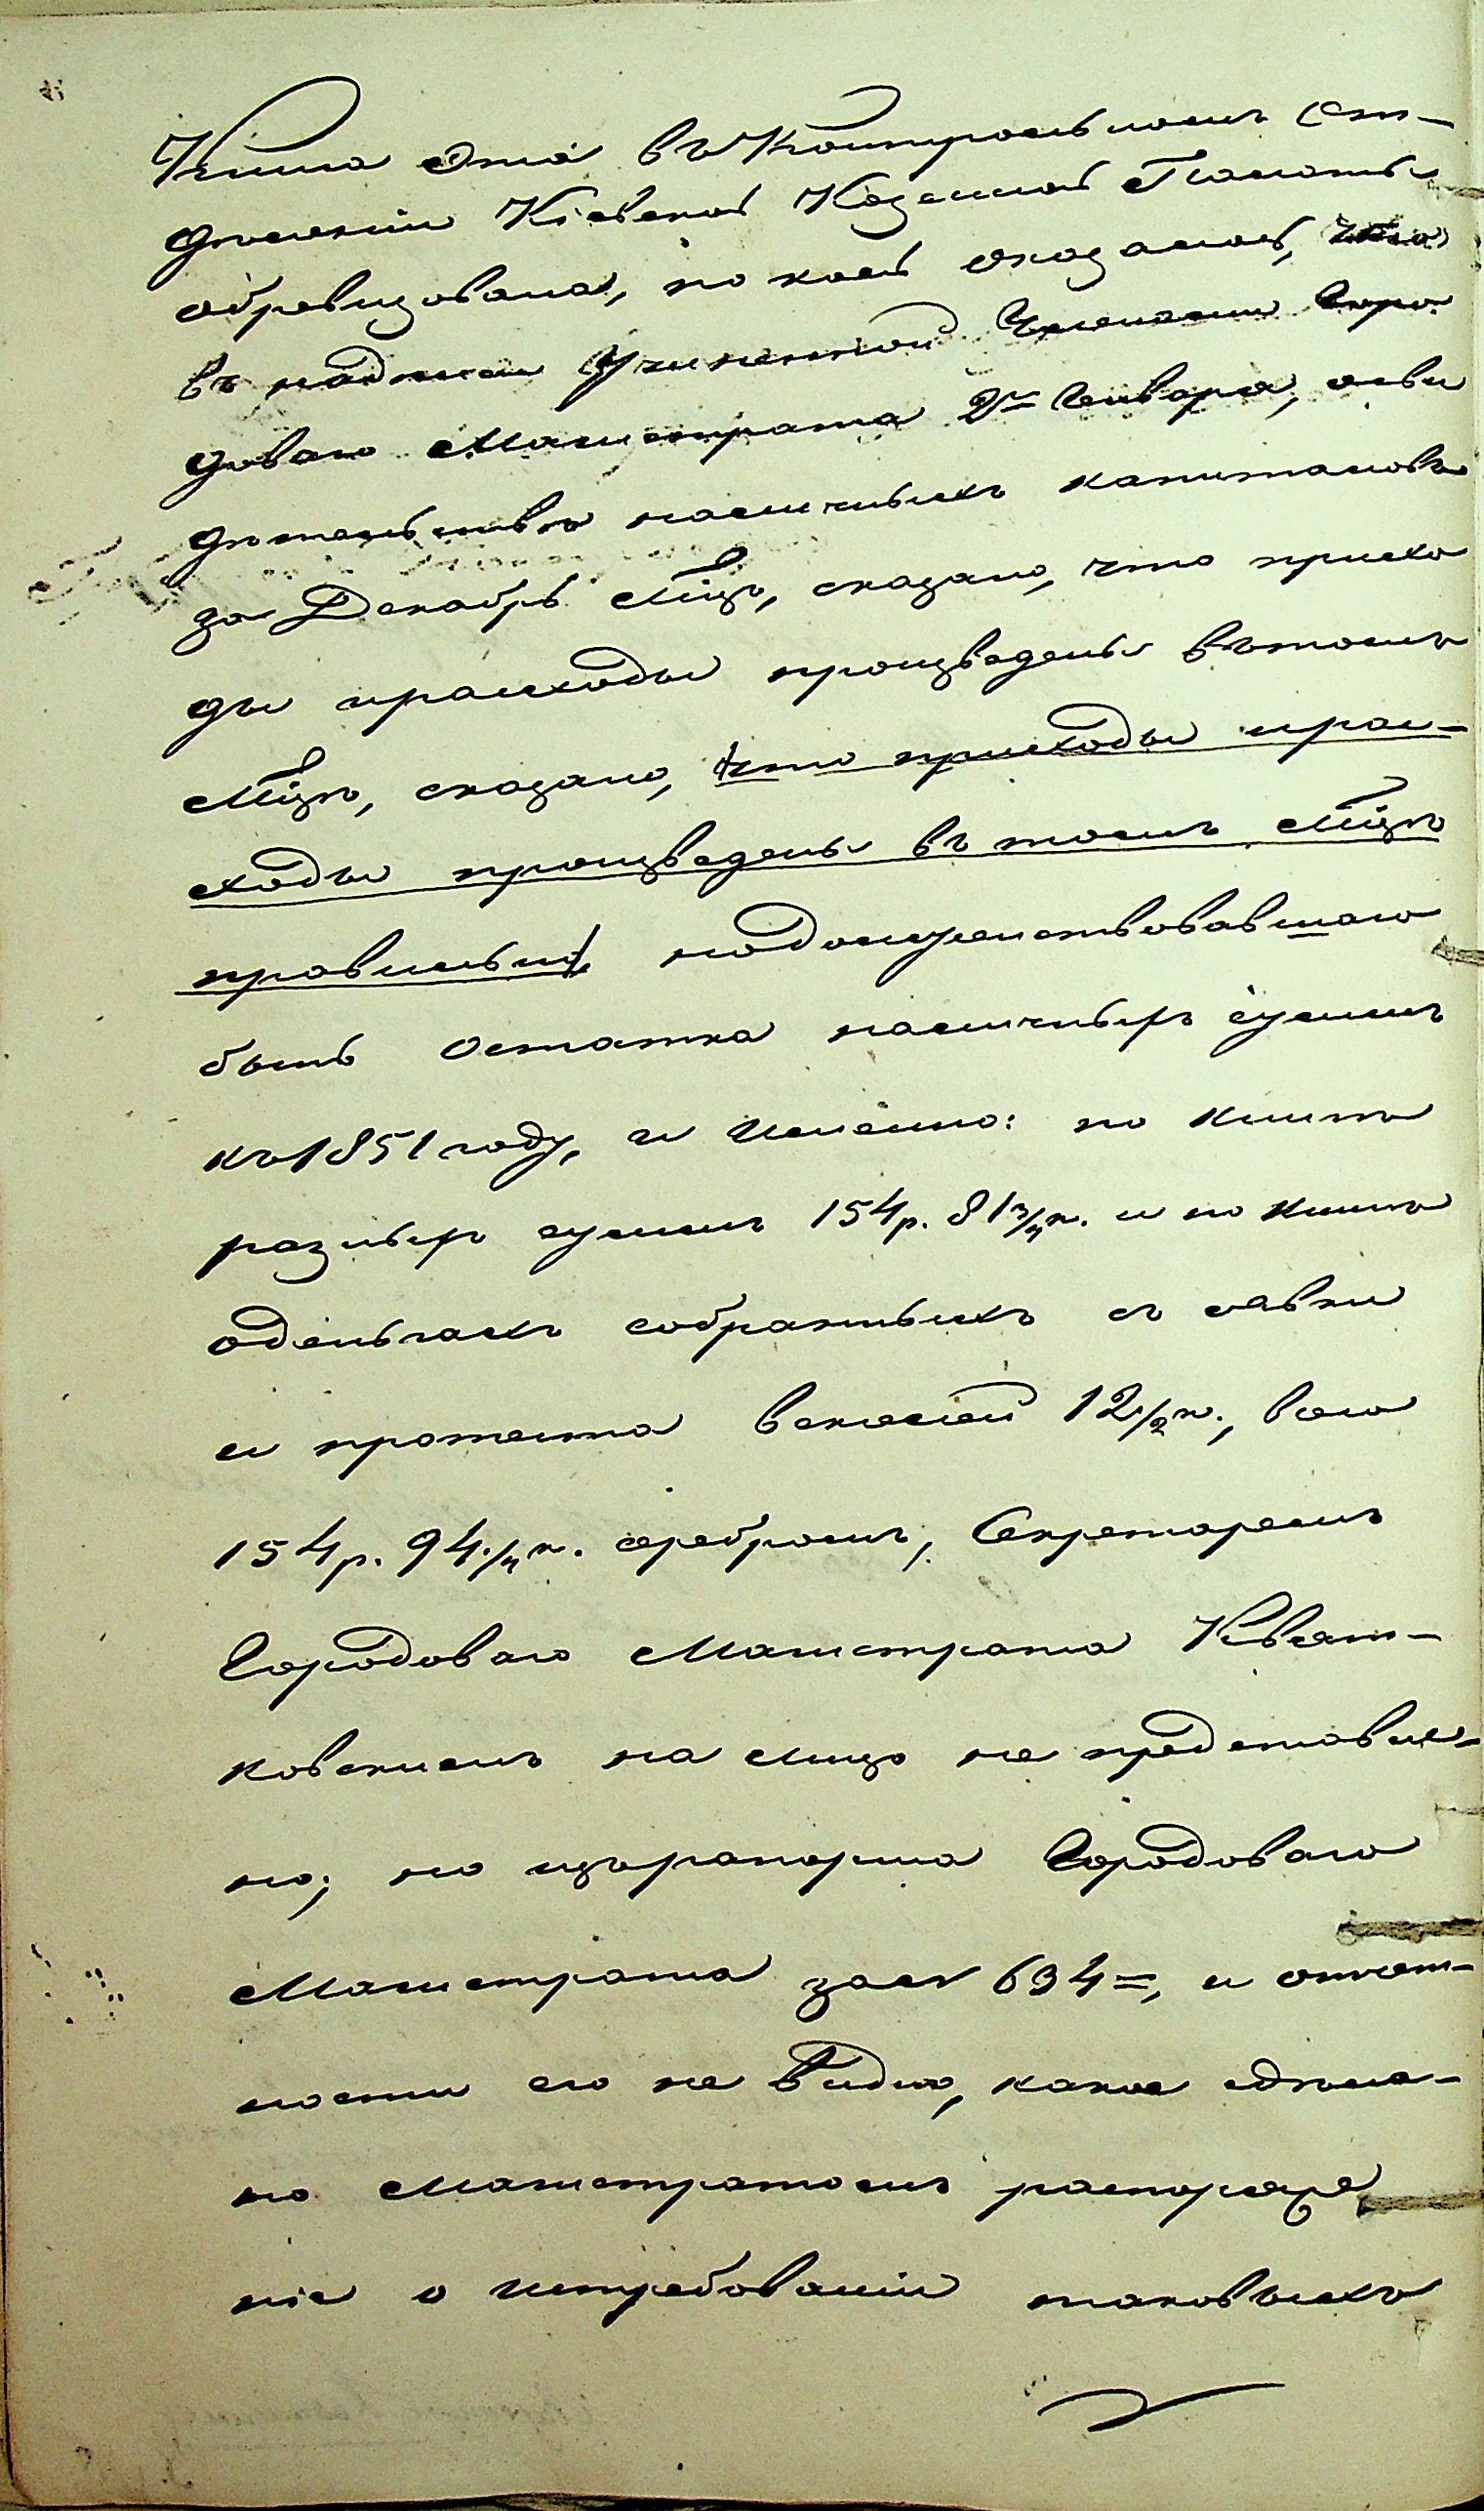 Книга эта въ Контрольномъ От-
дѣленіи Кіевской Казенной Палаты
обревизована, по коей оказалось, что
въ надписи Учиненной Членами Горо
доваго Магистрата 2го Генваря, осви
дѣтельствѣ наличныхъ капиталовъ
за Декабрь мѣцъ, сказано, что прихо
ды ирасходы произведены вътомъ
мѣцѣ, сказано, что приходы ирас-
ходы произведены въ томъ мѣцѣ
правильно, но долженствовавшаго
быть остатка наличныхъ суммъ
къ 1851 году, а именно: по книгѣ
разныхъ суммъ 154 р. 81¾ к. и по книгѣ
оденьгахъ собранныхъ съ явки
и протеста векселей 12½ к., всего
154 р. 94¼ к. серебромъ, Секретаремъ
Городоваго Магистрата Квят-
ковскимъ на лицо не представле-
но; но изърапорта Городоваго
Магистрата за № 634, и отчет-
ности его не видно, какое сдѣла-
но Магистратомъ распоряже
ніе о истребованіи таковыхъ